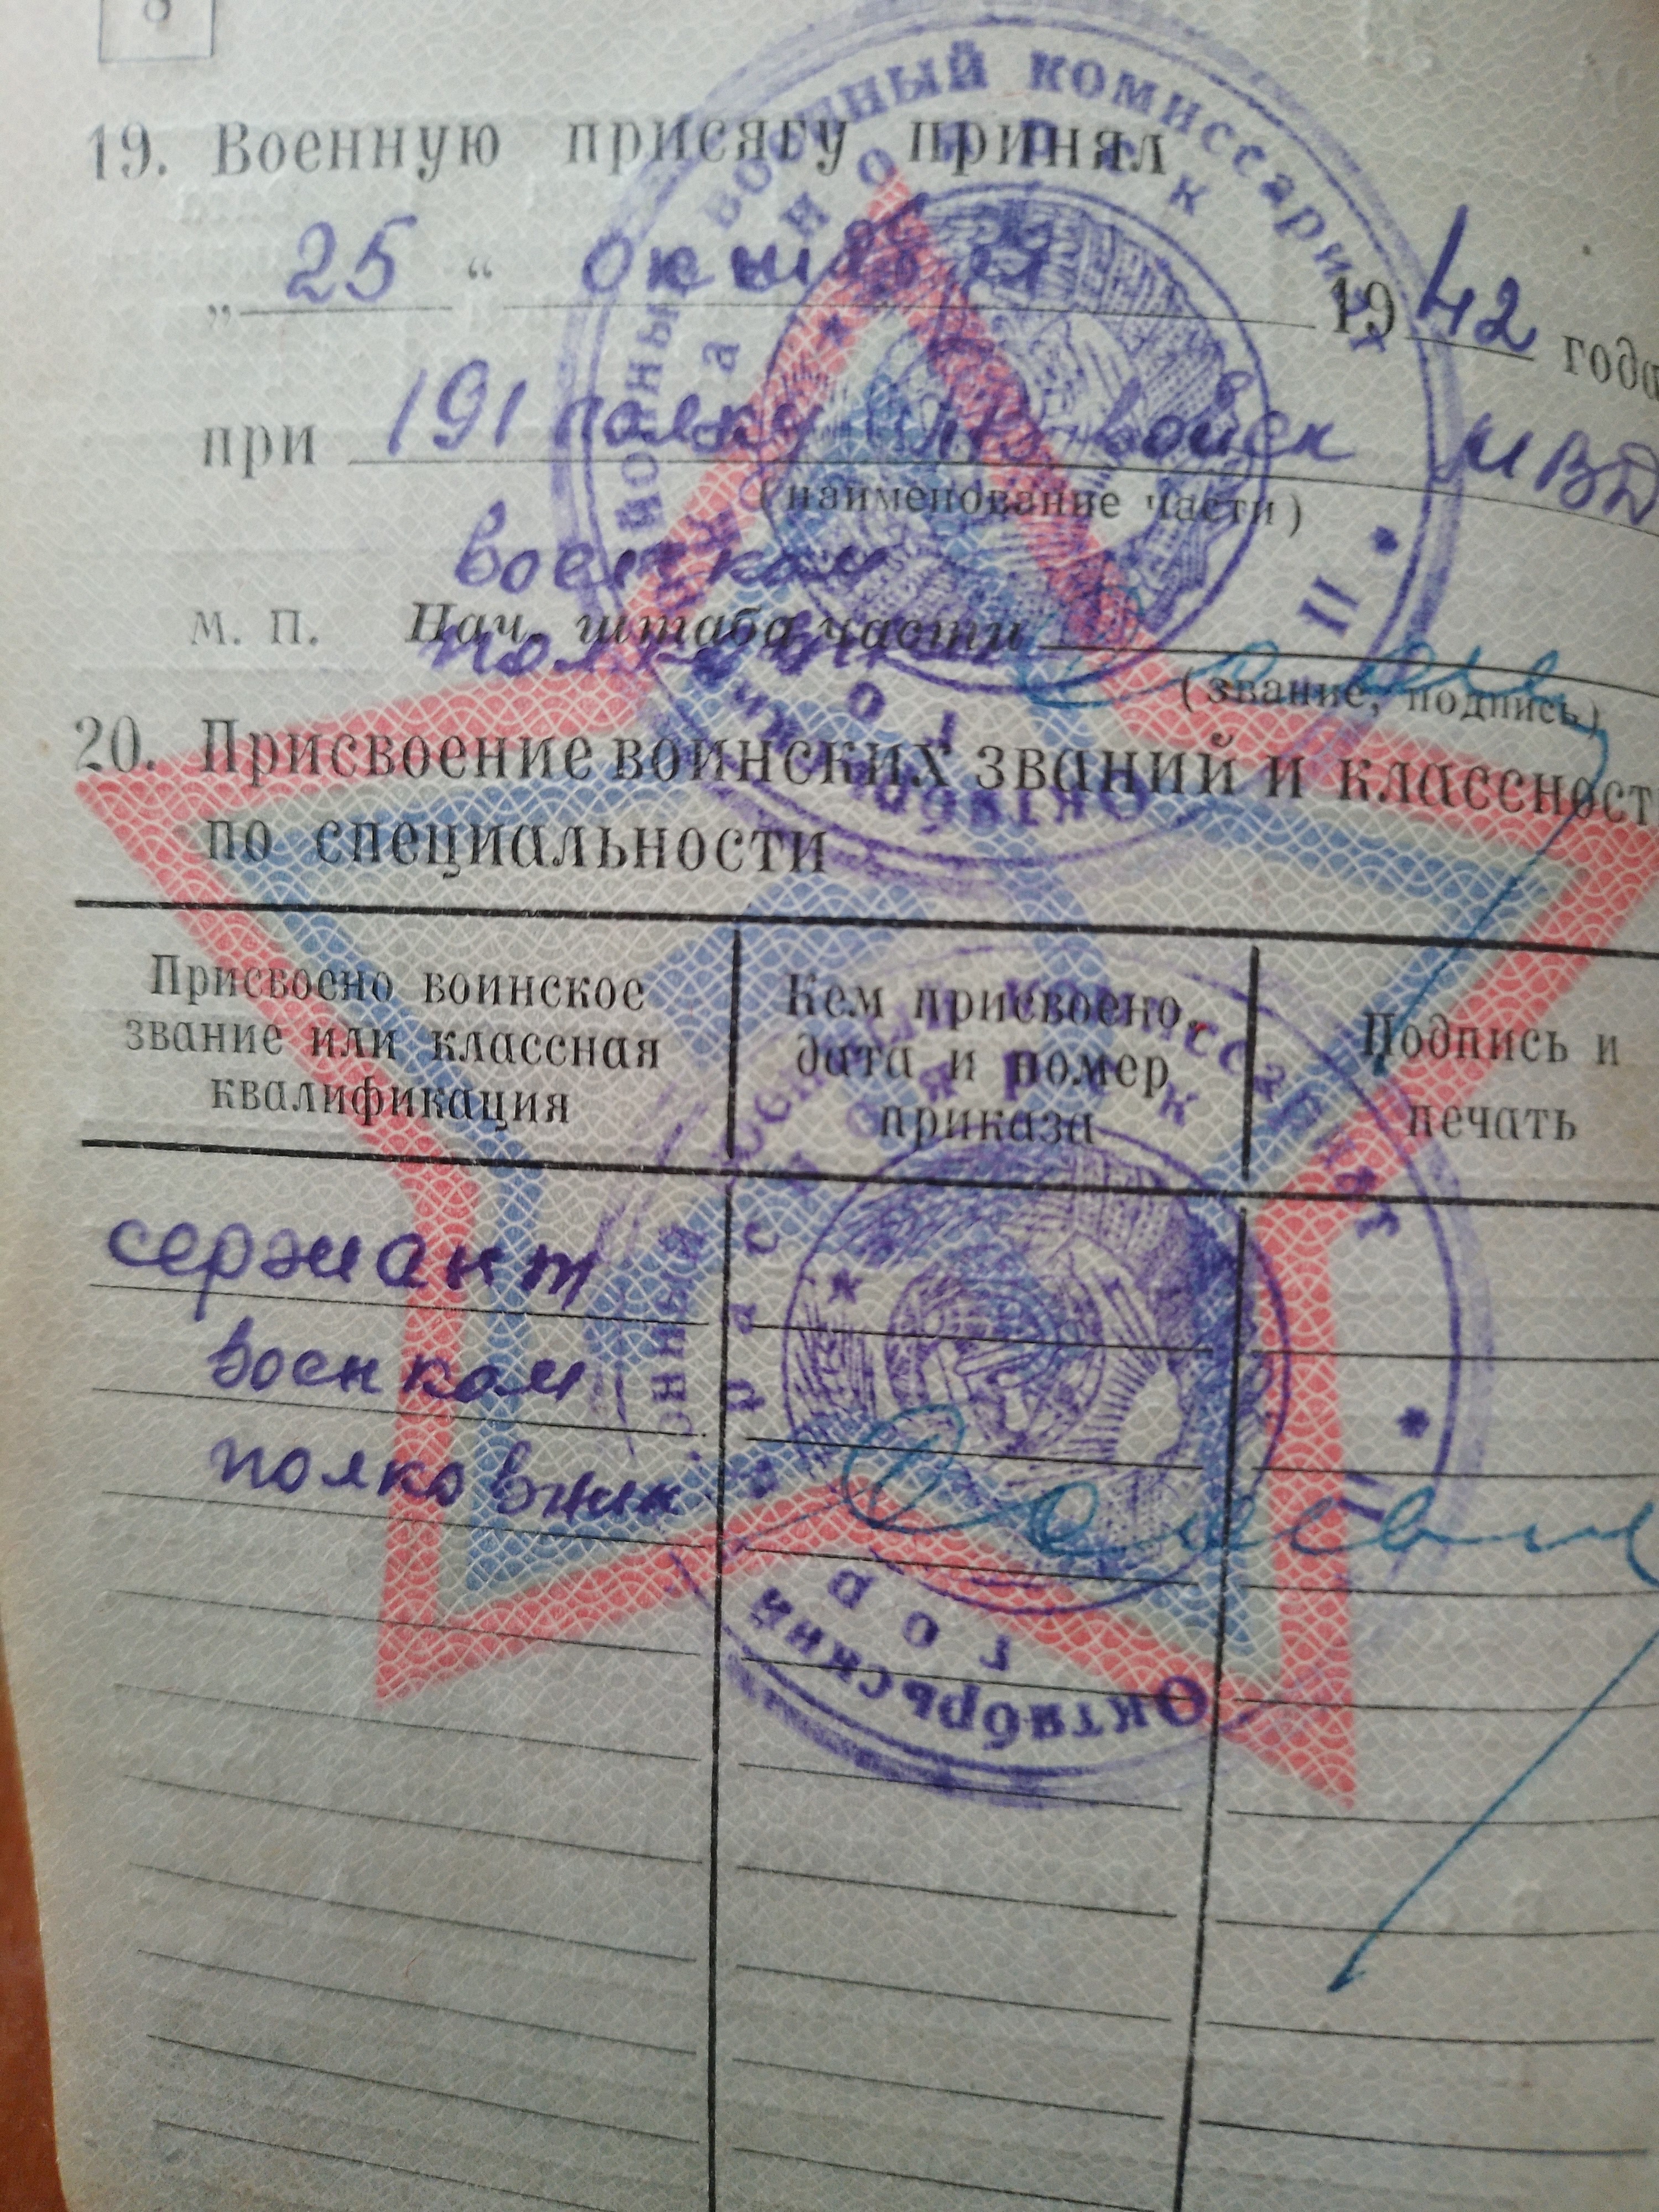 8
19. Военную присягу принял
„ 25 “ октября 1942 года
при 191 полку войск МВД
(наименование части)
военком
м. п. Нач. штаба части
(звание, подпись)
20. Присвоение воинских званий и классност
по специальности
Присвоено воинское
звание или классная
квалификация
Кем присвоено,
дата и номер
приказа
Подпись и
печать
сержант
военком
полковник
военный комиссариат
Красноярск
Октябрьский
гор